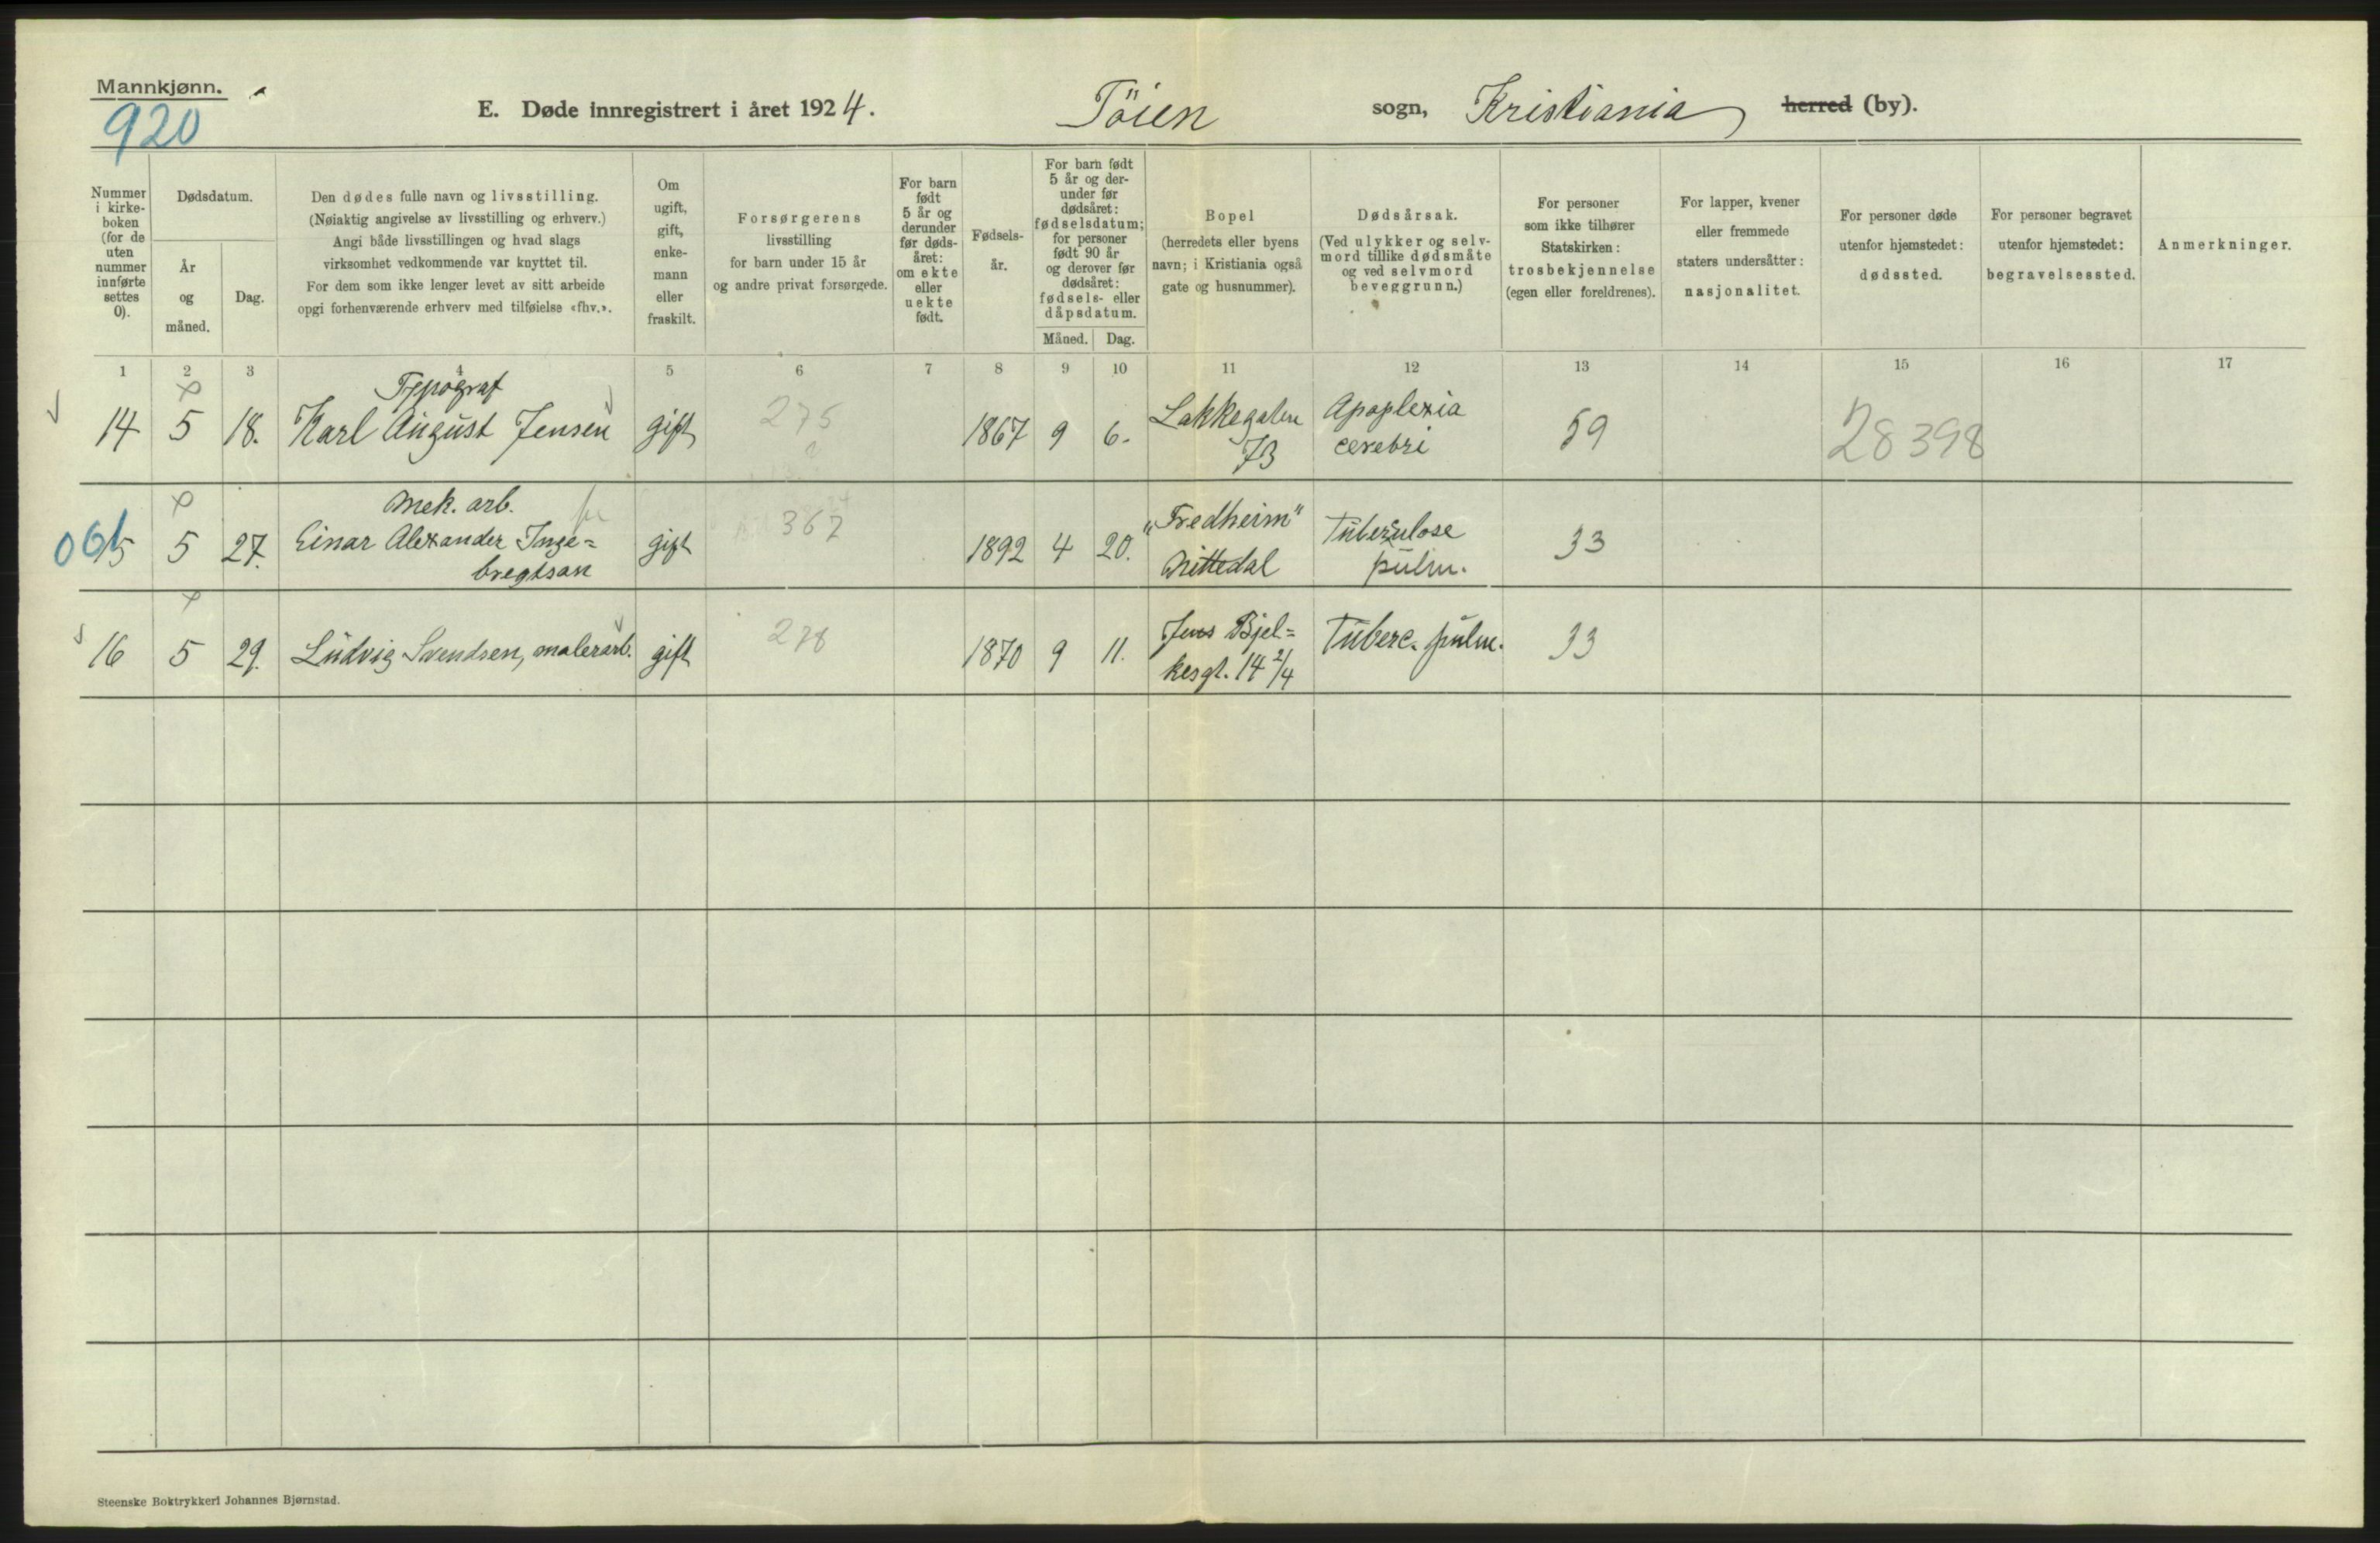 Mannkjønn.
920
E. Døde innregistrert i året 1924. Töien sogn, Kristiania herred (by).
Nummer i kirke-boken (for de uten nummer innførte settes 0).
Dødsdatum.
År og måned.
Dag.
Den dødes fulle navn og livsstilling.
(Nøiaktig angivelse av livsstilling og erhverv.)
Angi både livsstillingen og hvad slags
virksomhet vedkommende var knyttet til.
For dem som ikke lenger levet av sitt arbeide
opgi forhenværende erhverv med tilføielse «fhv.».
Om ugift, gift, enke-mann eller fraskilt.
Forsørgerens
livsstilling
for barn under 15 år
og andre privat forsørgede.
For barn født 5 år og derunder før døds-året: om ekte eller uekte født.
Fødsels-år.
For barn født 5 år og der-under før dødsåret: fødselsdatum; for personer født 90 år og derover før dødsåret: fødsels- eller dåpsdatum.
Måned. Dag.
Bopel
(herredets eller byens
navn; i Kristiania også
gate og husnummer).
Dødsårsak.
(Ved ulykker og selv-
mord tillike dødsmåte
og ved selvmord
beveggrunn.)
For personer
som ikke tilhører
Statskirken:
trosbekjennelse
(egen eller foreldrenes).
For lapper, kvener
eller fremmede
staters undersåtter:
nasjonalitet.
For personer døde
utenfor hjemstedet:
dødssted.
For personer begravet
utenfor hjemstedet:
begravelsessted.
Anmerkninger.
1 2 3 4 5 6 7 8 9 10 11 12 13 14 15 16 17
Typograf
14 5 18. Karl August Jensen gift 275 1867 9 6. Lakkegaten 73 Apoplexia cerebri 59 28398
Mek. arb.
061 15 5 27. Einar Alexander Inge=
bregtsen gift 367 1892 4 20. "Fredheim" Nittedal Tuberculose pulm. 33
16 5 29. Ludvig Svendsen, malerarb. gift 278 1870 9 11. Jens Bjel=
kesgt. 14 2/4 Tuberc. pulm. 33
Steenske Boktrykkeri Johannes Bjørnstad.